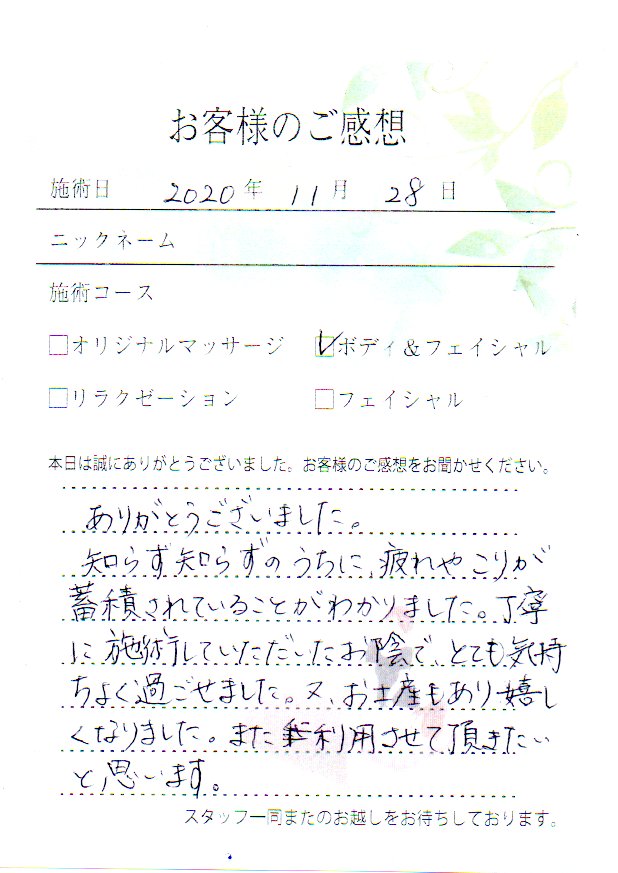 お客様のご感想
施術日 2020年 11月 28日
ニックネーム
施術コース
□オリジナルマッサージ ☑ボディ&フェイシャル
□リラクゼーション □フェイシャル
本日は誠にありがとうございました。お客様のご感想をお聞かせください。
ありがとうございました。
知らず知らずのうちに、疲れやこりが
蓄積されていることがわかりました。丁寧
に施術していただいたお陰で、とても気持
ちよく過ごせました。又、お土産もあり嬉し
くなりました。また利用させて頂きたい
と思います。
スタッフ一同またのお越しをお待ちしております。